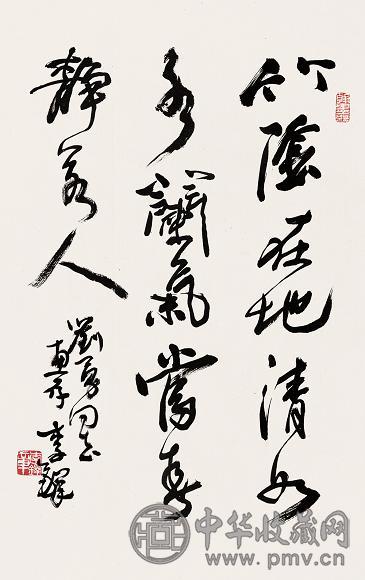 竹陰在地清如
水蘭氣當春
靜若人
劉勇同志
惠存 李鐸
中华收藏网
www.pmv.cn